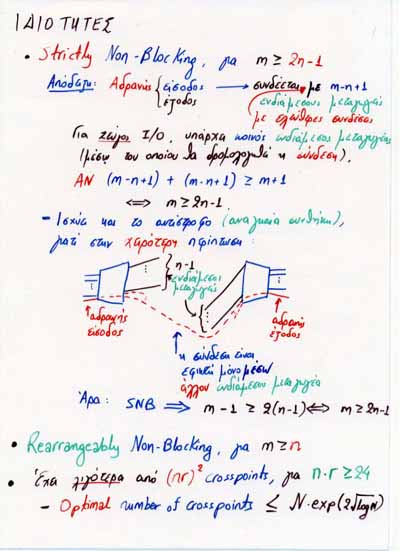 ΙΔΙΟΤΗΤΕΣ
• Strictly Non-Blocking, για m ≥ 2n-1
Απόδειξη: Αδρανής { είσοδος → συνδέεται με m-n+1
έξοδος ενδιάμεσους μεταγωγείς
με ελεύθερες συνδέσεις
Για ζεύγος I/O, υπάρχει κοινός ενδιάμεσος μεταγωγέας
(μέσω του οποίου θα δρομολογηθεί η σύνδεση),
ΑΝ (m-n+1) + (m-n+1) ≥ m+1
⇔ m ≥ 2n-1.
- Ισχύει και το αντίστροφο (αναγκαία συνθήκη),
γιατί στην χειρότερη περίπτωση:
n-1
ενδιάμεσοι
μεταγωγείς
αδρανής
είσοδος
αδρανής
έξοδος
η σύνδεση είναι
εφικτή μόνο μέσω
άλλου ενδιάμεσου μεταγωγέα
Άρα: SNB ⇒ m-1 ≥ 2(n-1) ⇔ m ≥ 2n-1
• Rearrangeably Non-Blocking, για m ≥ n
• Έχει λιγότερα από (nr)² crosspoints, για n·r ≥ 24
- Optimal number of crosspoints ≤ N·exp(2√logN)